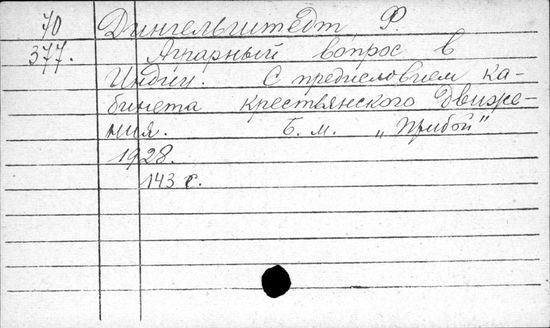 70 Дингельштедт, Ф.
377. Аграрный вопрос в
Индии. С предисловием ка-
бинета крестьянского движе-
ния. Б. м. „Прибой"
1928.
143 с.